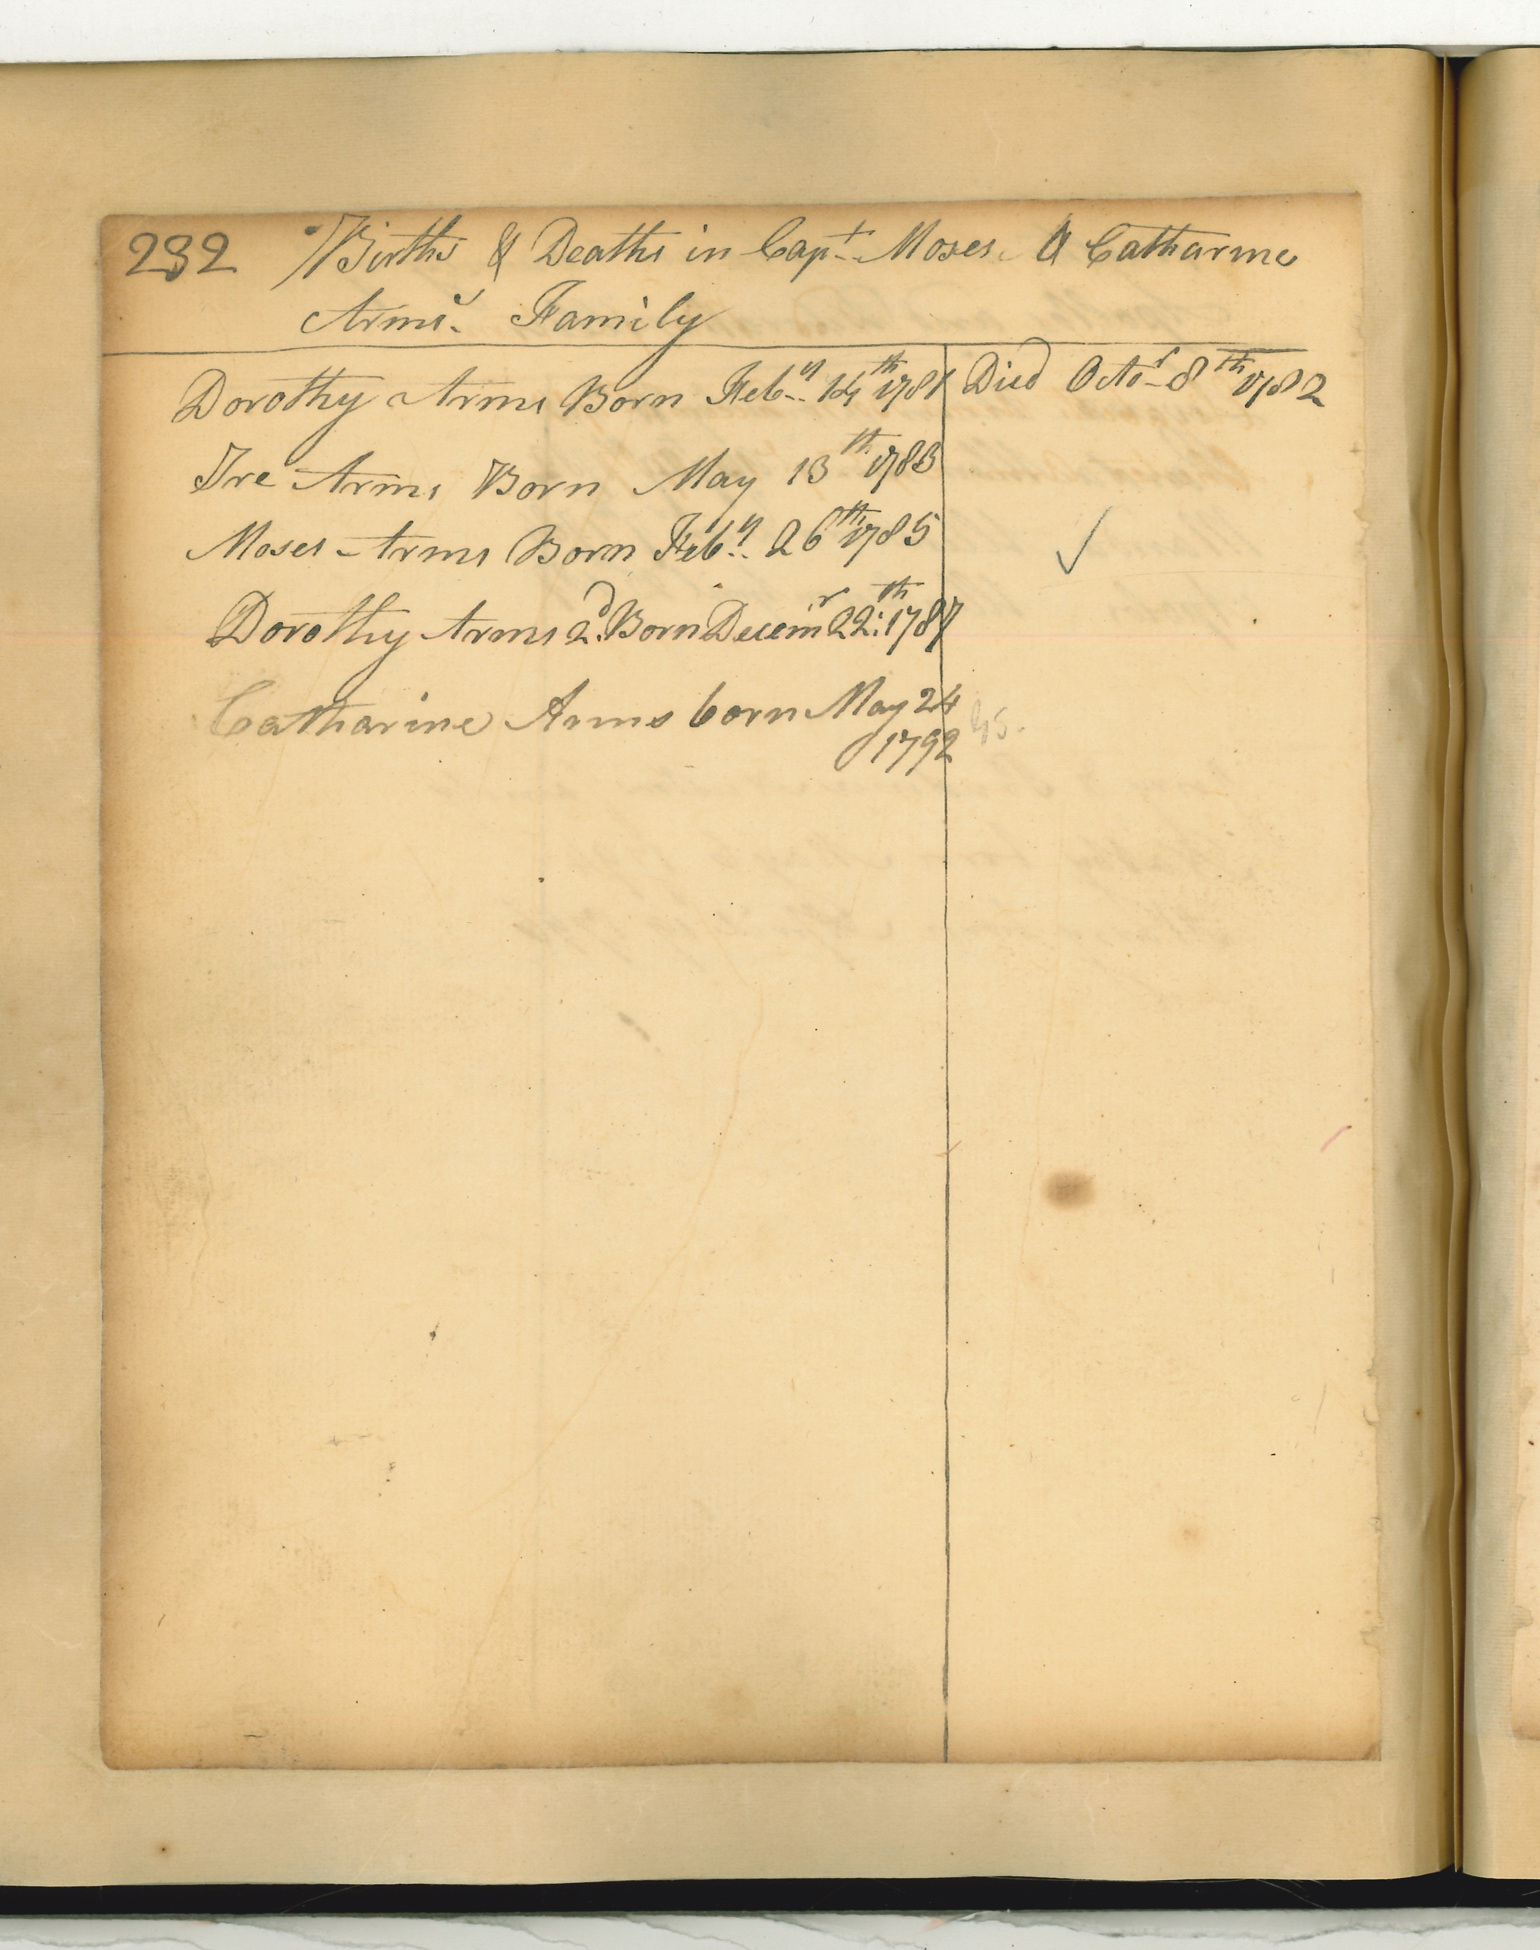 232 Births & Deaths in Capt. Moses & Catharine
Arms. Family
Dorothy Arms Born Feby. 14th 1781 Died Octor 8th 1782
Ire Arms Born May 13th 1783
Moses Arms Born Feby. 26th 1785
Dorothy Arms 2d. Born Decemr 22th: 1787
Catharine Arms born May 24
1792